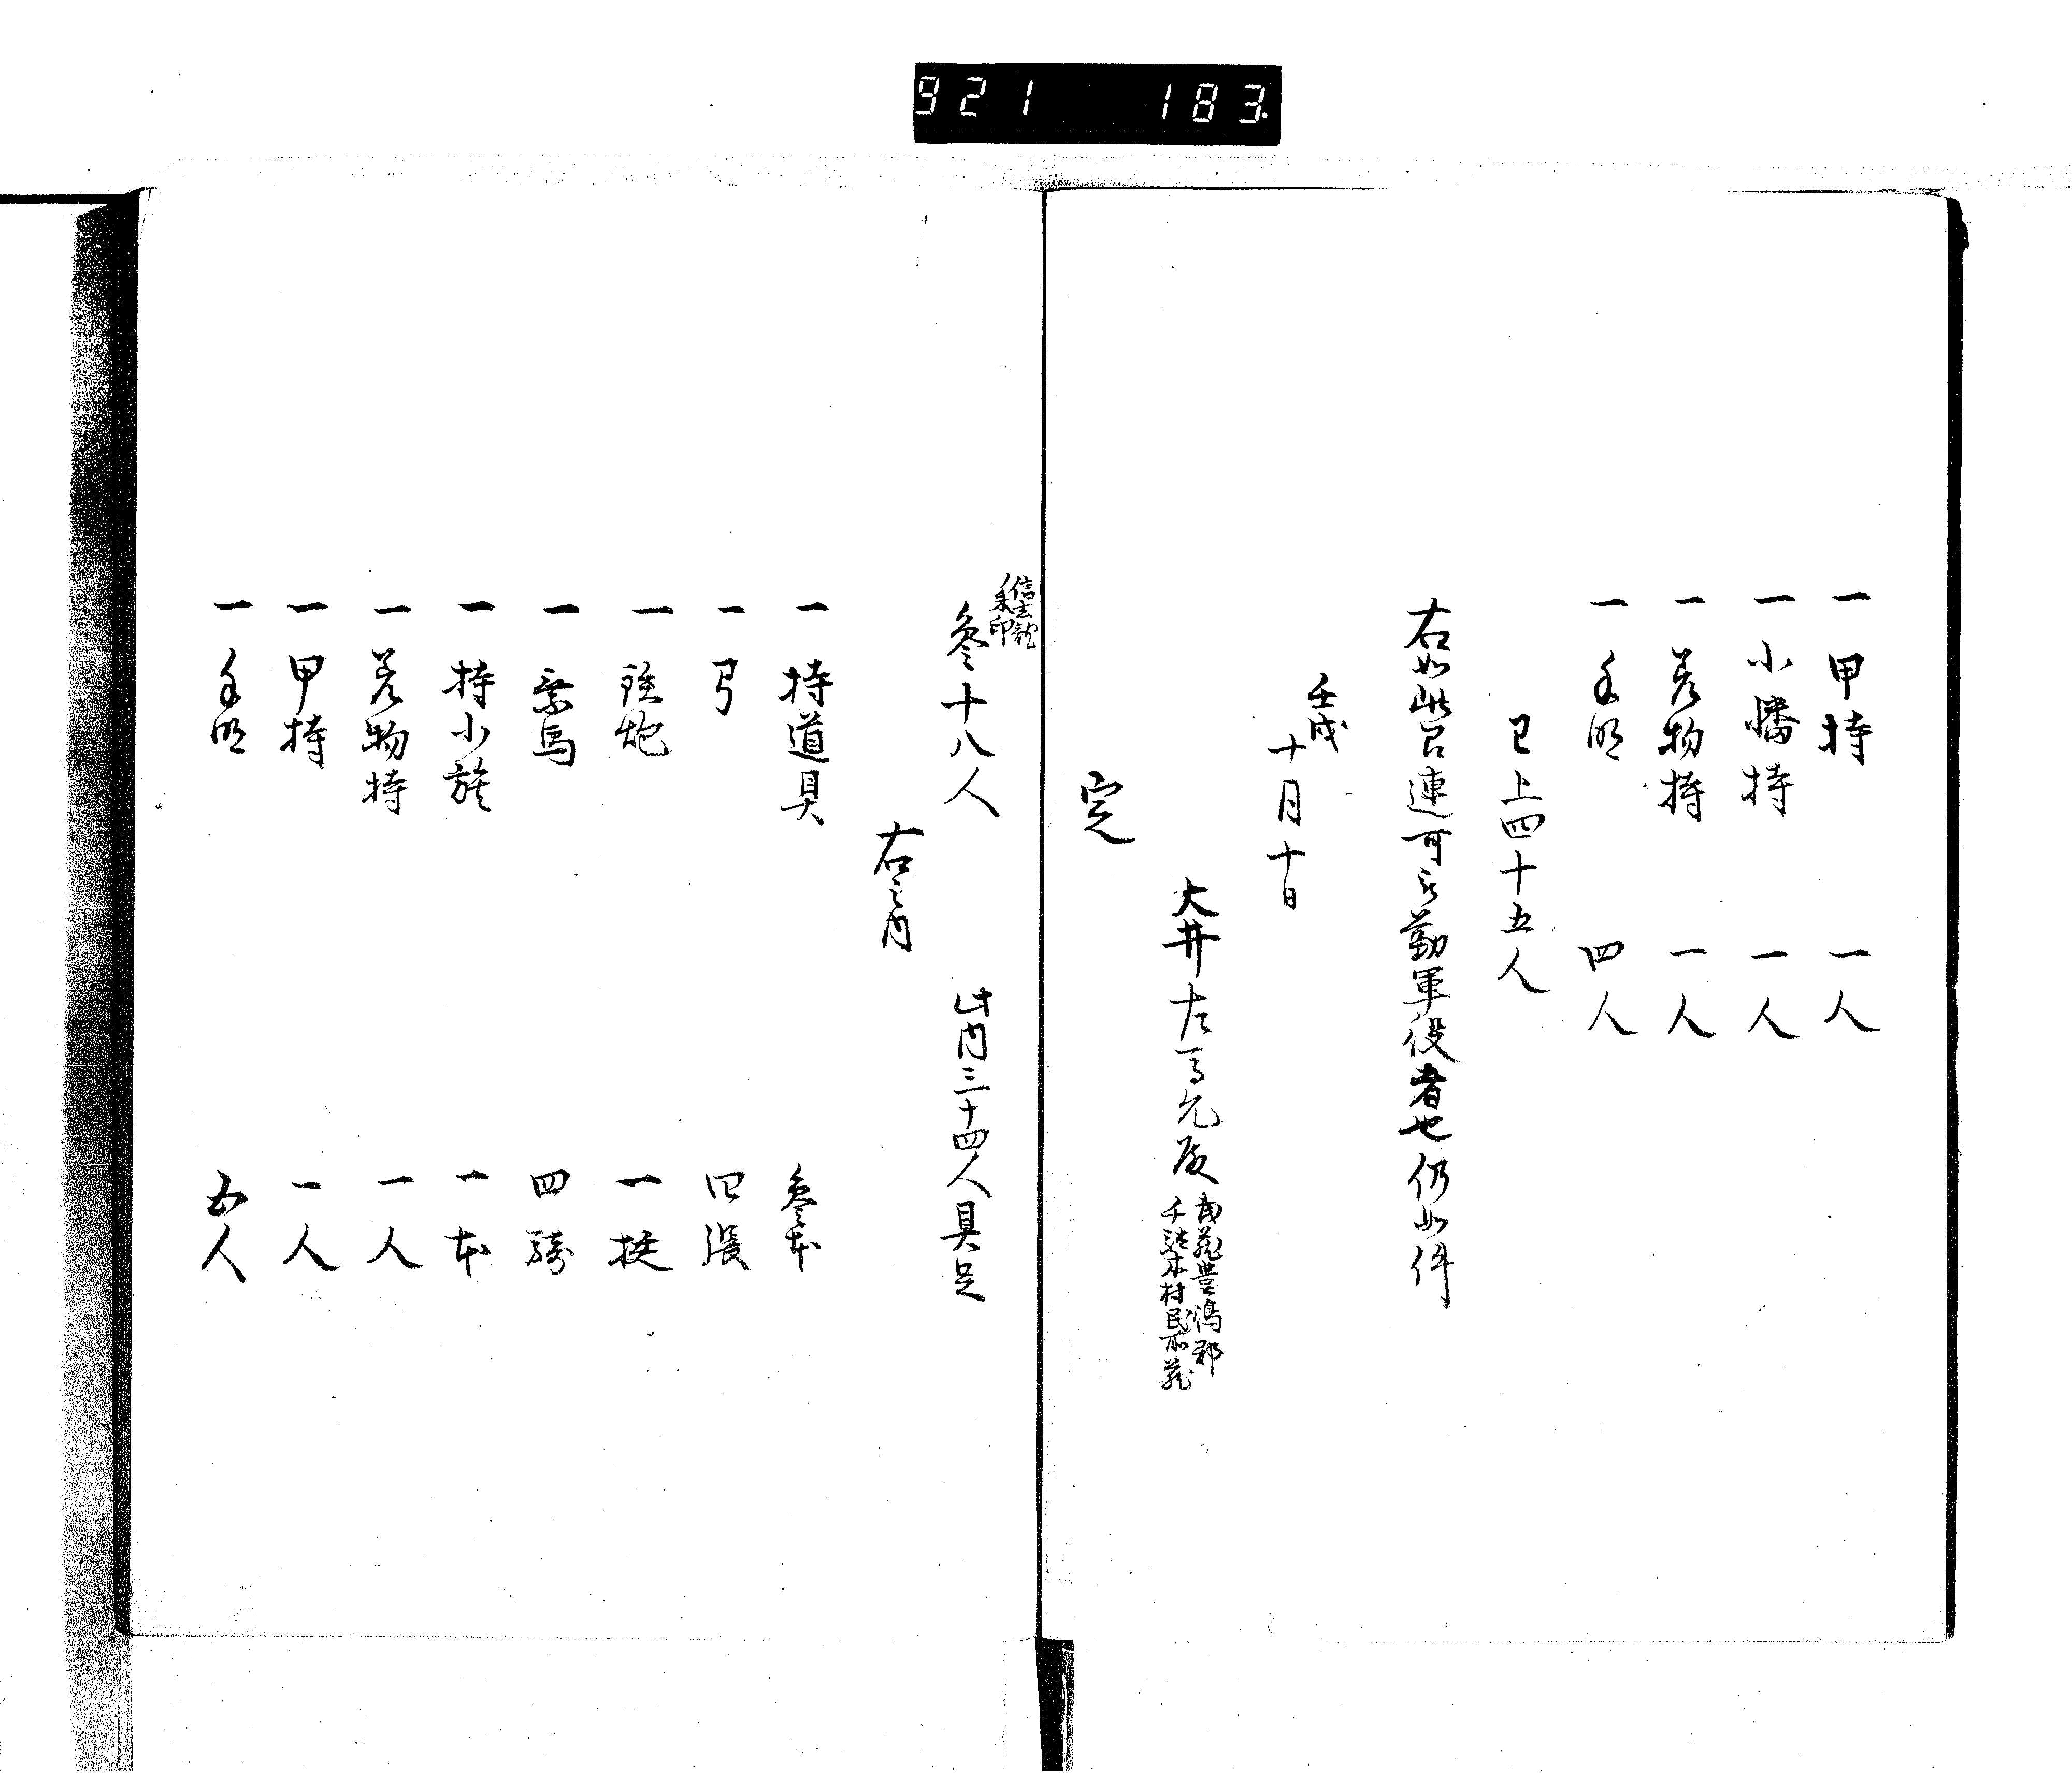 921 183
一甲持 一人
一小幡持 一人
一差物持 一人
一手明 四人
已上四十五人
右如此召連可被勤軍役者也仍如件
壬戌
十月十日
大井左馬允殿
武蔵豊嶋郡
千駄木村民所蔵
定
信玄龍
朱印
参十八人 此内三十四人具足
右之内
一持道具 参本
一弓 四張
一鉄炮 一挺
一乗馬 四騎
一持小旗 一本
一差物持 一人
一甲持 一人
一手明 五人